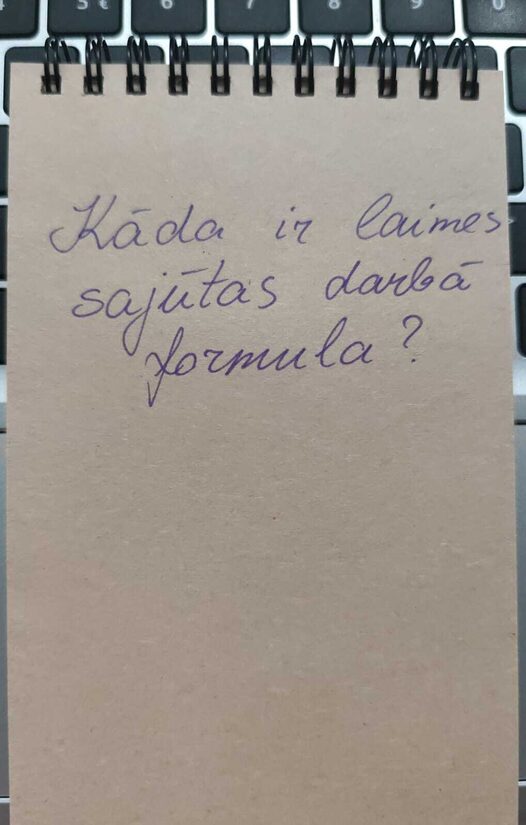 5 €
6
7
8
9
0
Kāda ir laimes
sajūtas darbā
formula?